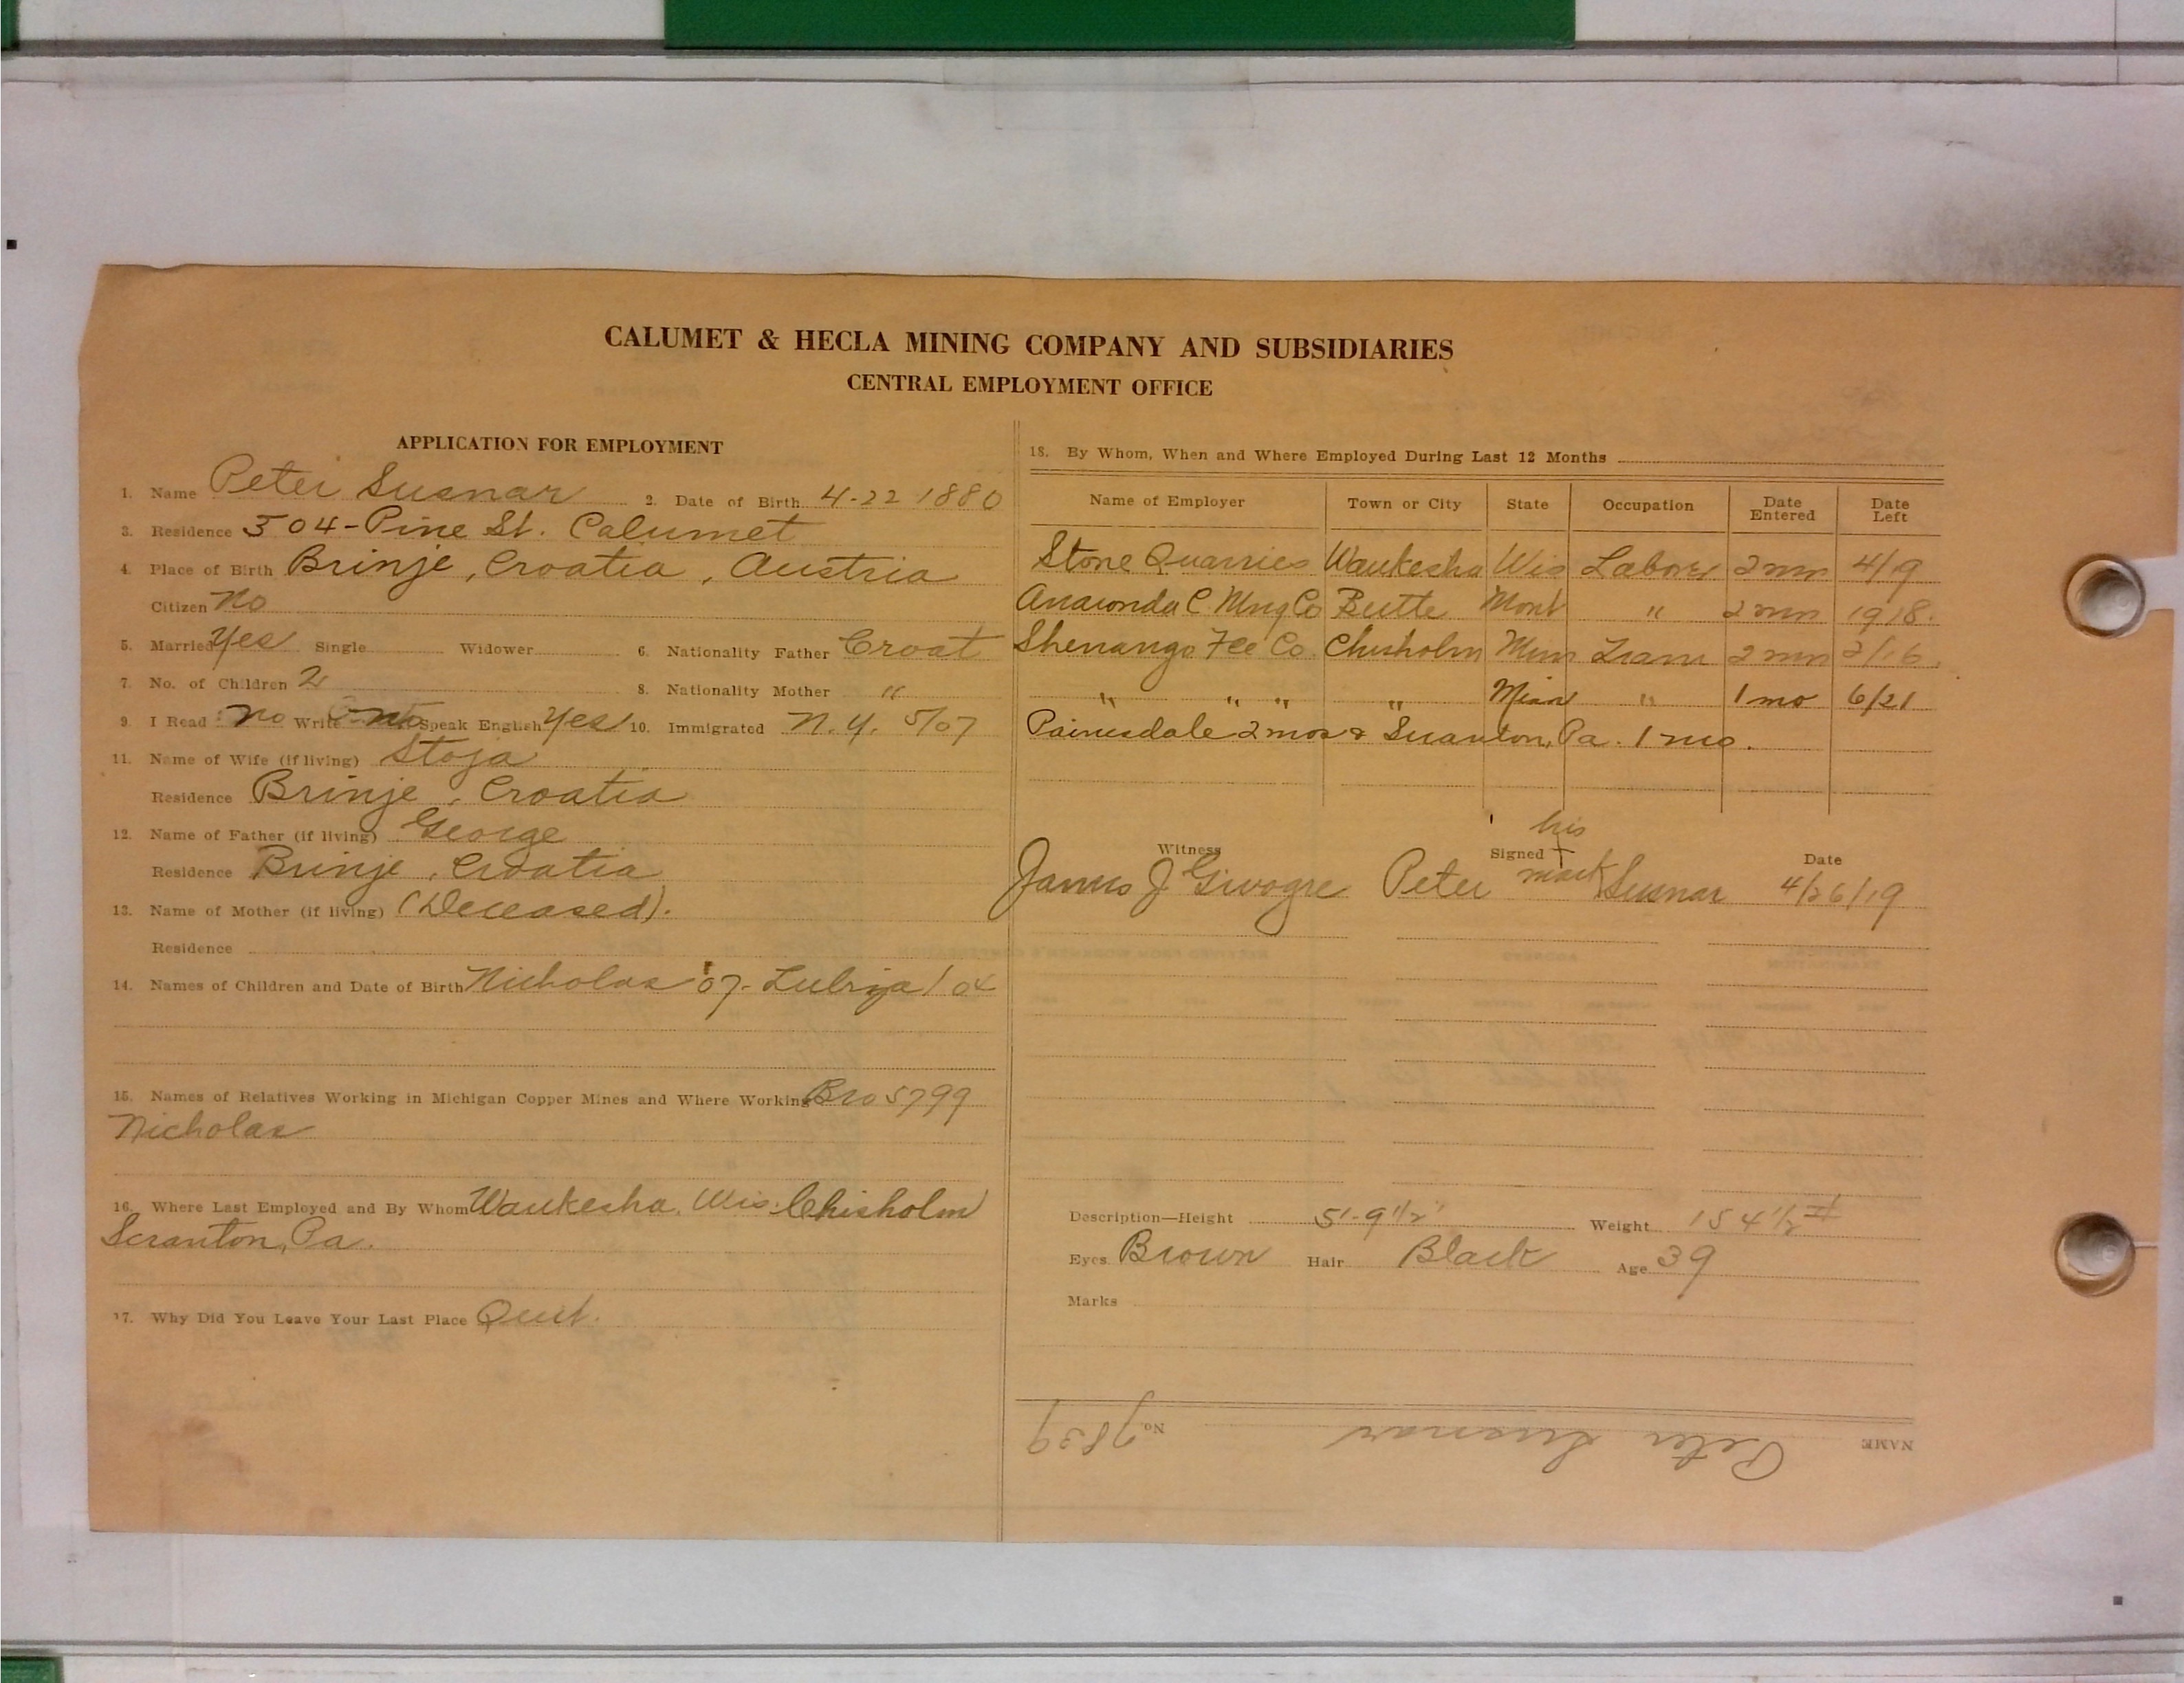 CALUMET & HECLA MINING COMPANY AND SUBSIDIARIES
CENTRAL EMPLOYMENT OFFICE
APPLICATION FOR EMPLOYMENT
1. Name Peter Susnar 2. Date of Birth 4-22 1880
3. Residence 504-Pine St. Calumet
4. Place of Birth Brinje, Croatia, Austria
Citizen No
5. Married Yes Single Widower 6. Nationality Father Croat
7. No. of Children 2 8. Nationality Mother "
9. I Read no Write no Speak English Yes 10. Immigrated N.Y. 5/07
11. Name of Wife (if living) Stoja
Residence Brinje, Croatia
12. Name of Father (if living) George
Residence Brinje, Croatia
13. Name of Mother (if living) (Deceased).
Residence
14. Names of Children and Date of Birth Nicholas '07- 04
15. Names of Relatives Working in Michigan Copper Mines and Where Working Bro 5799
Nicholas
16. Where Last Employed and By Whom Waukesha, Wis. Chisholm
Scranton, Pa.
17. Why Did You Leave Your Last Place Quit.
18. By Whom, When and Where Employed During Last 12 Months
Name of Employer Town or City State Occupation Date Entered Date Left
Stone Quarries Waukesha Wis Labor 2 mn 4/19
Anaconda C. Mng Co Butte Mont " 2 mn 1918.
Shenango Fce Co. Chisholm Minn Tram 2 mn /16
" " " " Minn " 1 mo 6/21
Painesdale 2 mos & Scranton, Pa. 1 mo.
his
Witness Signed Date
James J Peter mark Susnar 4/26/19
Description—Height 5'-9 1/2" Weight 154 1/2 #
Eyes Brown Hair Black Age 39
Marks
NAME Peter Susnar No. 9839